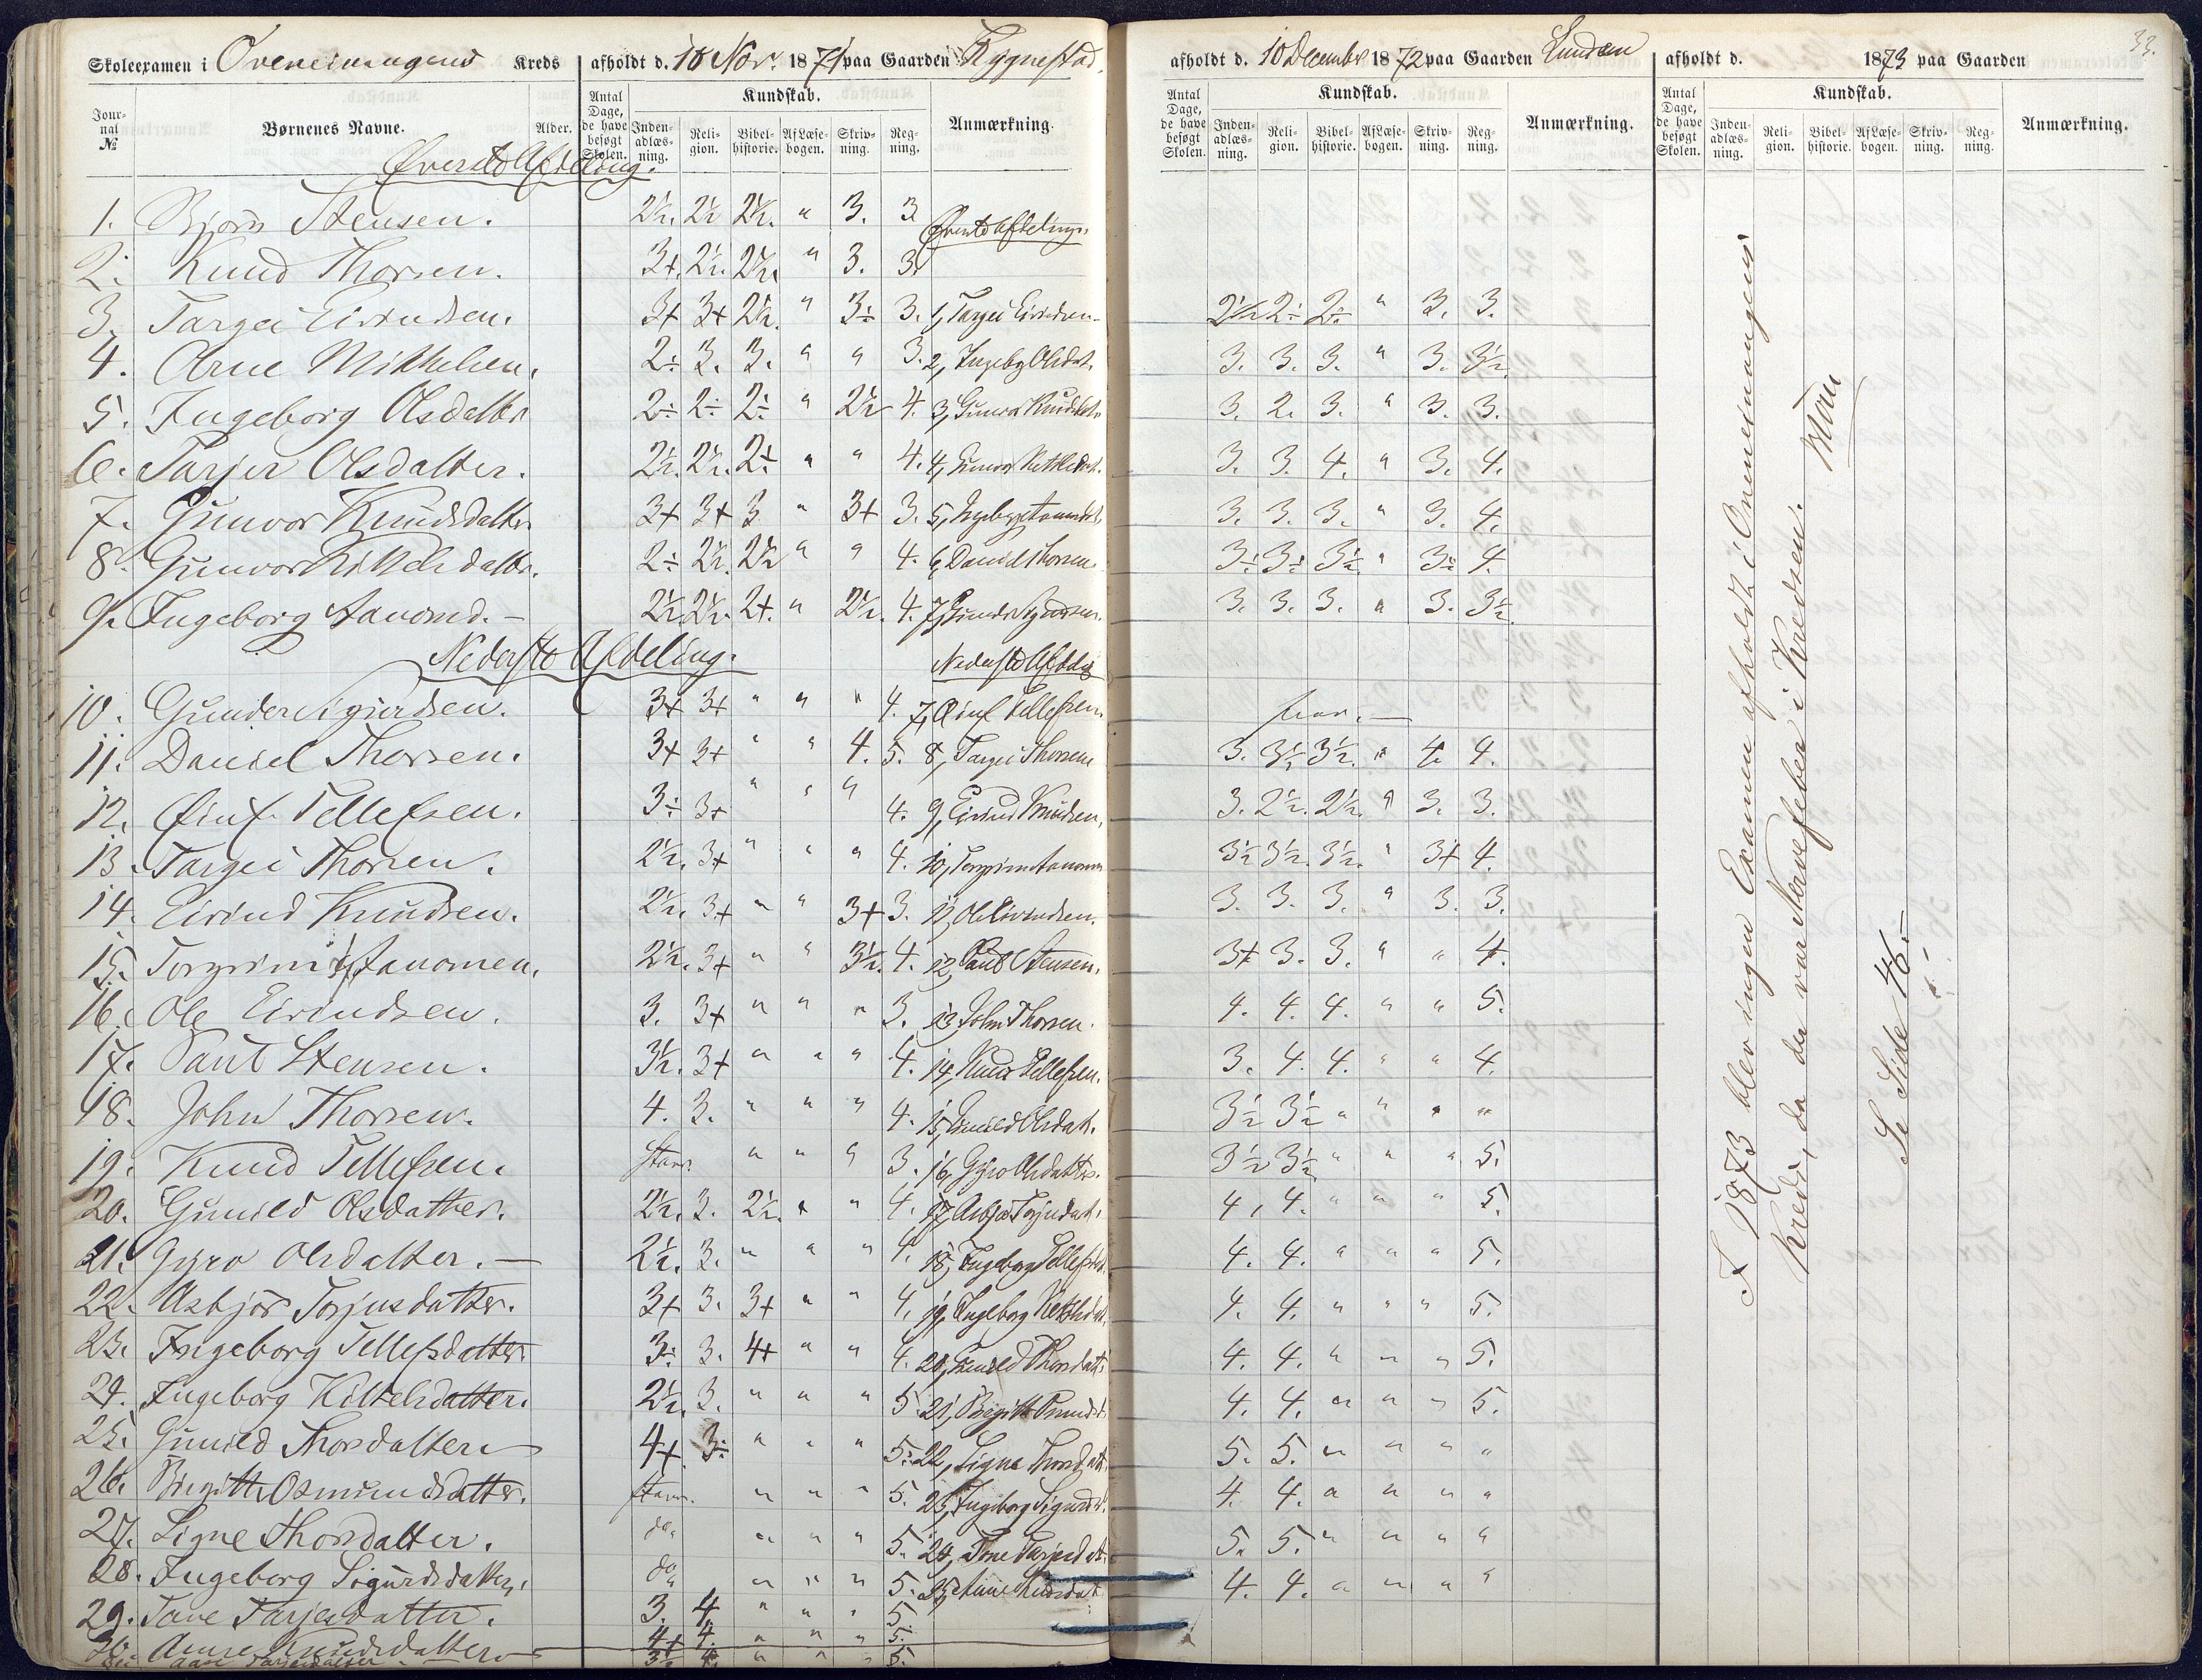 Skoleexamen i Kreds afholdt d. 10 Nov. 1871 paa Gaarden Rygnestad.
Jour-nal № Børnenes Navne. Alder. Antal Dage, de have besøgt Skolen. Kundskab. Inden-adlæs-ning. Reli-gion. Bibel-historie. Af Læse-bogen. Skriv-ning. Reg-ning. Anmærkning.
Øverste Afdeling.
1. Bjørn Stensen. 2½. 2½ 2½. " 3. 3. Øverste Afdeling.
2. Knud Thorsen. 3+. 2½. 2½. " 3. 3.
3. Targei Eivindsen. 3+ 3+ 2½. " 3÷ 3. 1, Targei Eivindsen
4. Arne Mikkelsen. 2÷ 3. 3. " " 3. 2, Ingebg Olsdat.
5. Ingeborg Olsdatter 2÷ 2÷ 2÷ " 2½ 4. 3, Gunvor Knudsdat.
6. Tarjer Olsdatter. 2½. 2½. 2÷ " " 4. 4, Gunvor Kittelsdat.
7. Gunvor Knudsdatter 3+ 3+ 3 " 3+ 3. 5, Ingebg Aanundsd.
8. Gunvor Kittelsdatter. 2÷ 2½. 2½ " " 4. 6, Daniel Thorsen
9. Ingeborg Aanond.– 2½. 2½. 2+. " 2½. 4. 7, Gunder Sigurdsen.
Nederste Afdeling. Nederste Afdeling
10. Gunder Sigurdsen. 3+ 3+ " " " 4. 7, Eiuf Tellefsen.
11. Daniel Thorsen. 3+ 3+ " " 4. 5. 8, Targei Thorsen
12. Eiuf Tellefsen. 3÷ 3+ " " " 4. 9, Eivind Knudsen.
13. Targei Thorsen. 2½. 3+ " " " 4. 10, Torgrim Aanonsen
14. Eivind Knudsen. 2½. 3+ " " 3+ 3. 11, Ole Eivindsen.
15. Torgrim Aanonsen. 2½. 3+ " " 3½. 4. 12, Paul Stensen.
16. Ole Eivindsen. 3. 3+ " " " 3. 13, John Thorsen.
17. Paul Stensen. 3½. 3+ " " " 4. 14, Knud Tellefsen.
18. John Thorsen. 4. 3. " " " 4. 15, Gunild Olsdat.
19. Knud Tellefsen. stav. " " " 3. 16, Gyro Olsdatter.
20. Gunild Olsdatter. 2½. 3. 2½. " " 4. 17, Asbjør Torjusdat.
21. Gyro Olsdatter.– 2½. 3. " " " 4. 18, Ingeborg Tellefsdat.
22. Asbjør Torjusdatter. 3+ 3. 3+ " " 4. 19, Ingeborg Kittelsdat.
23. Ingeborg Tellefsdatter. 3÷ 3. 4+ " " 4. 20, Gunild Thorsdatt.
24. Ingeborg Kittelsdatter. 2½. 3. " " " 5. 21, Birgitte Osmundsd.
25. Gunild Thorsdatter. 4+. 3÷ " " " 5. 22, Signe Thorsdatt.
26. Birgitte Osmundsdatter. stav. " " " 5. 23, Ingeborg Sigurdsd.
27. Signe Thorsdatter. do. " " " 5. 24, Tone Tarjeisdat.
28. Ingeborg Sigurdsdatter. do. " " " 5. 25, Anne Knudsdat
29. Tone Tarjeisdatter. 3. 4. " " " 5.
30. Anne Knudsdatter 4+ 4. " " " 5.
3½ 4. " " " 5.
afholdt d. 10 December 1872 paa Gaarden Lunden
Antal Dage, de have besøgt Skolen. Kundskab. Inden-adlæs-ning. Reli-gion. Bibel-historie. Af Læse-bogen. Skriv-ning. Reg-ning. Anmærkning.
2½ 2÷ 2÷ " 3. 3.
3. 3. 3. " 3. 3½.
3. 2. 3. " 3. 3.
3. 3. 4. " 3. 4.
3. 3. 3. " 3. 4.
3÷ 3÷ 3½. " 3÷ 4.
3. 3. 3. " 3. 3½.
3. 3½ 3½. " 4. 4.
3. 2½. 2½. " 3. 3.
3½ 3½. 3½. " 3+ 4.
3. 3. 3. " 3. 3.
3+ 3. 3. " " 4.
4. 4. 4. " " 5.
3. 4. 4. " " 4.
3½ 3½ " " " "
3½ 3½ " " " 5.
4. 4. " " " 5.
4. 4. " " " 5.
4. 4. " " " 5.
4. 4. " " " 5.
4. 4. " " " 5.
5. 5. " " " "
4. 4. " " " "
5. 5. " " " "
4. 4. " " " "
afholdt d. 1873 paa Gaarden 33.
Antal Dage, de have besøgt Skolen. Kundskab. Inden-adlæs-ning. Reli-gion. Bibel-historie. Af Læse-bogen. Skriv-ning. Reg-ning. Anmærkning.
I 1873 blev ingen Examen afholdt i
Kreds, da der var Nervefeber i Kredsen.
Se Side 46.–